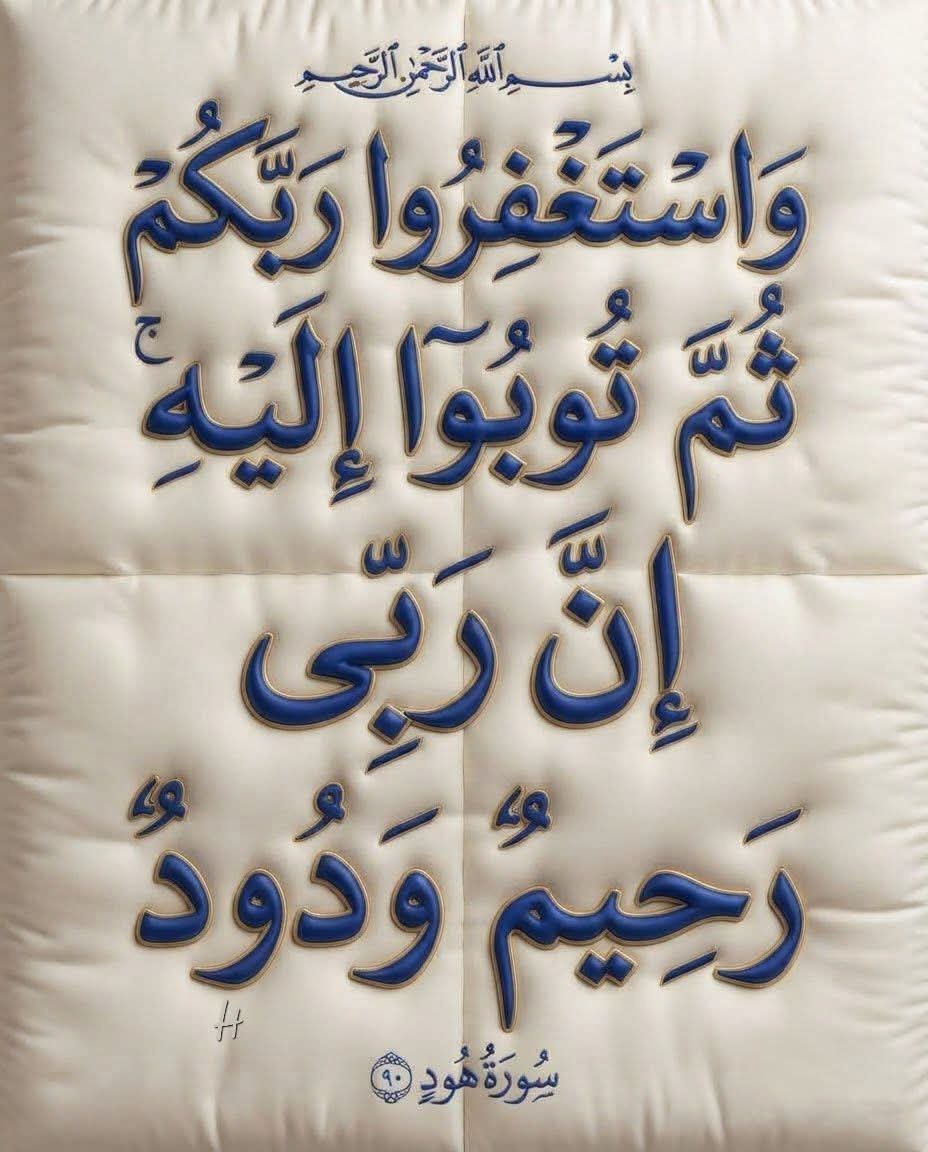 بِسْمِ ٱللَّهِ ٱلرَّحْمَٰنِ ٱلرَّحِيمِ
وَاسْتَغْفِرُوا رَبَّكُمْ
ثُمَّ تُوبُوٓا إِلَيْهِ ۚ
إِنَّ رَبِّى
رَحِيمٌ وَدُودٌ
H
سُورَةُ هُودٍ ٩٠